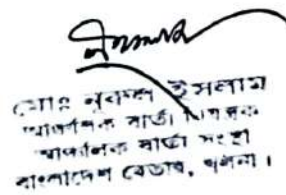 মোঃ নূরুল ইসলাম
আঞ্চলিক বার্তা নিয়ন্ত্রক
আঞ্চলিক বার্তা সংস্থা
বাংলাদেশ বেতার, খুলনা।